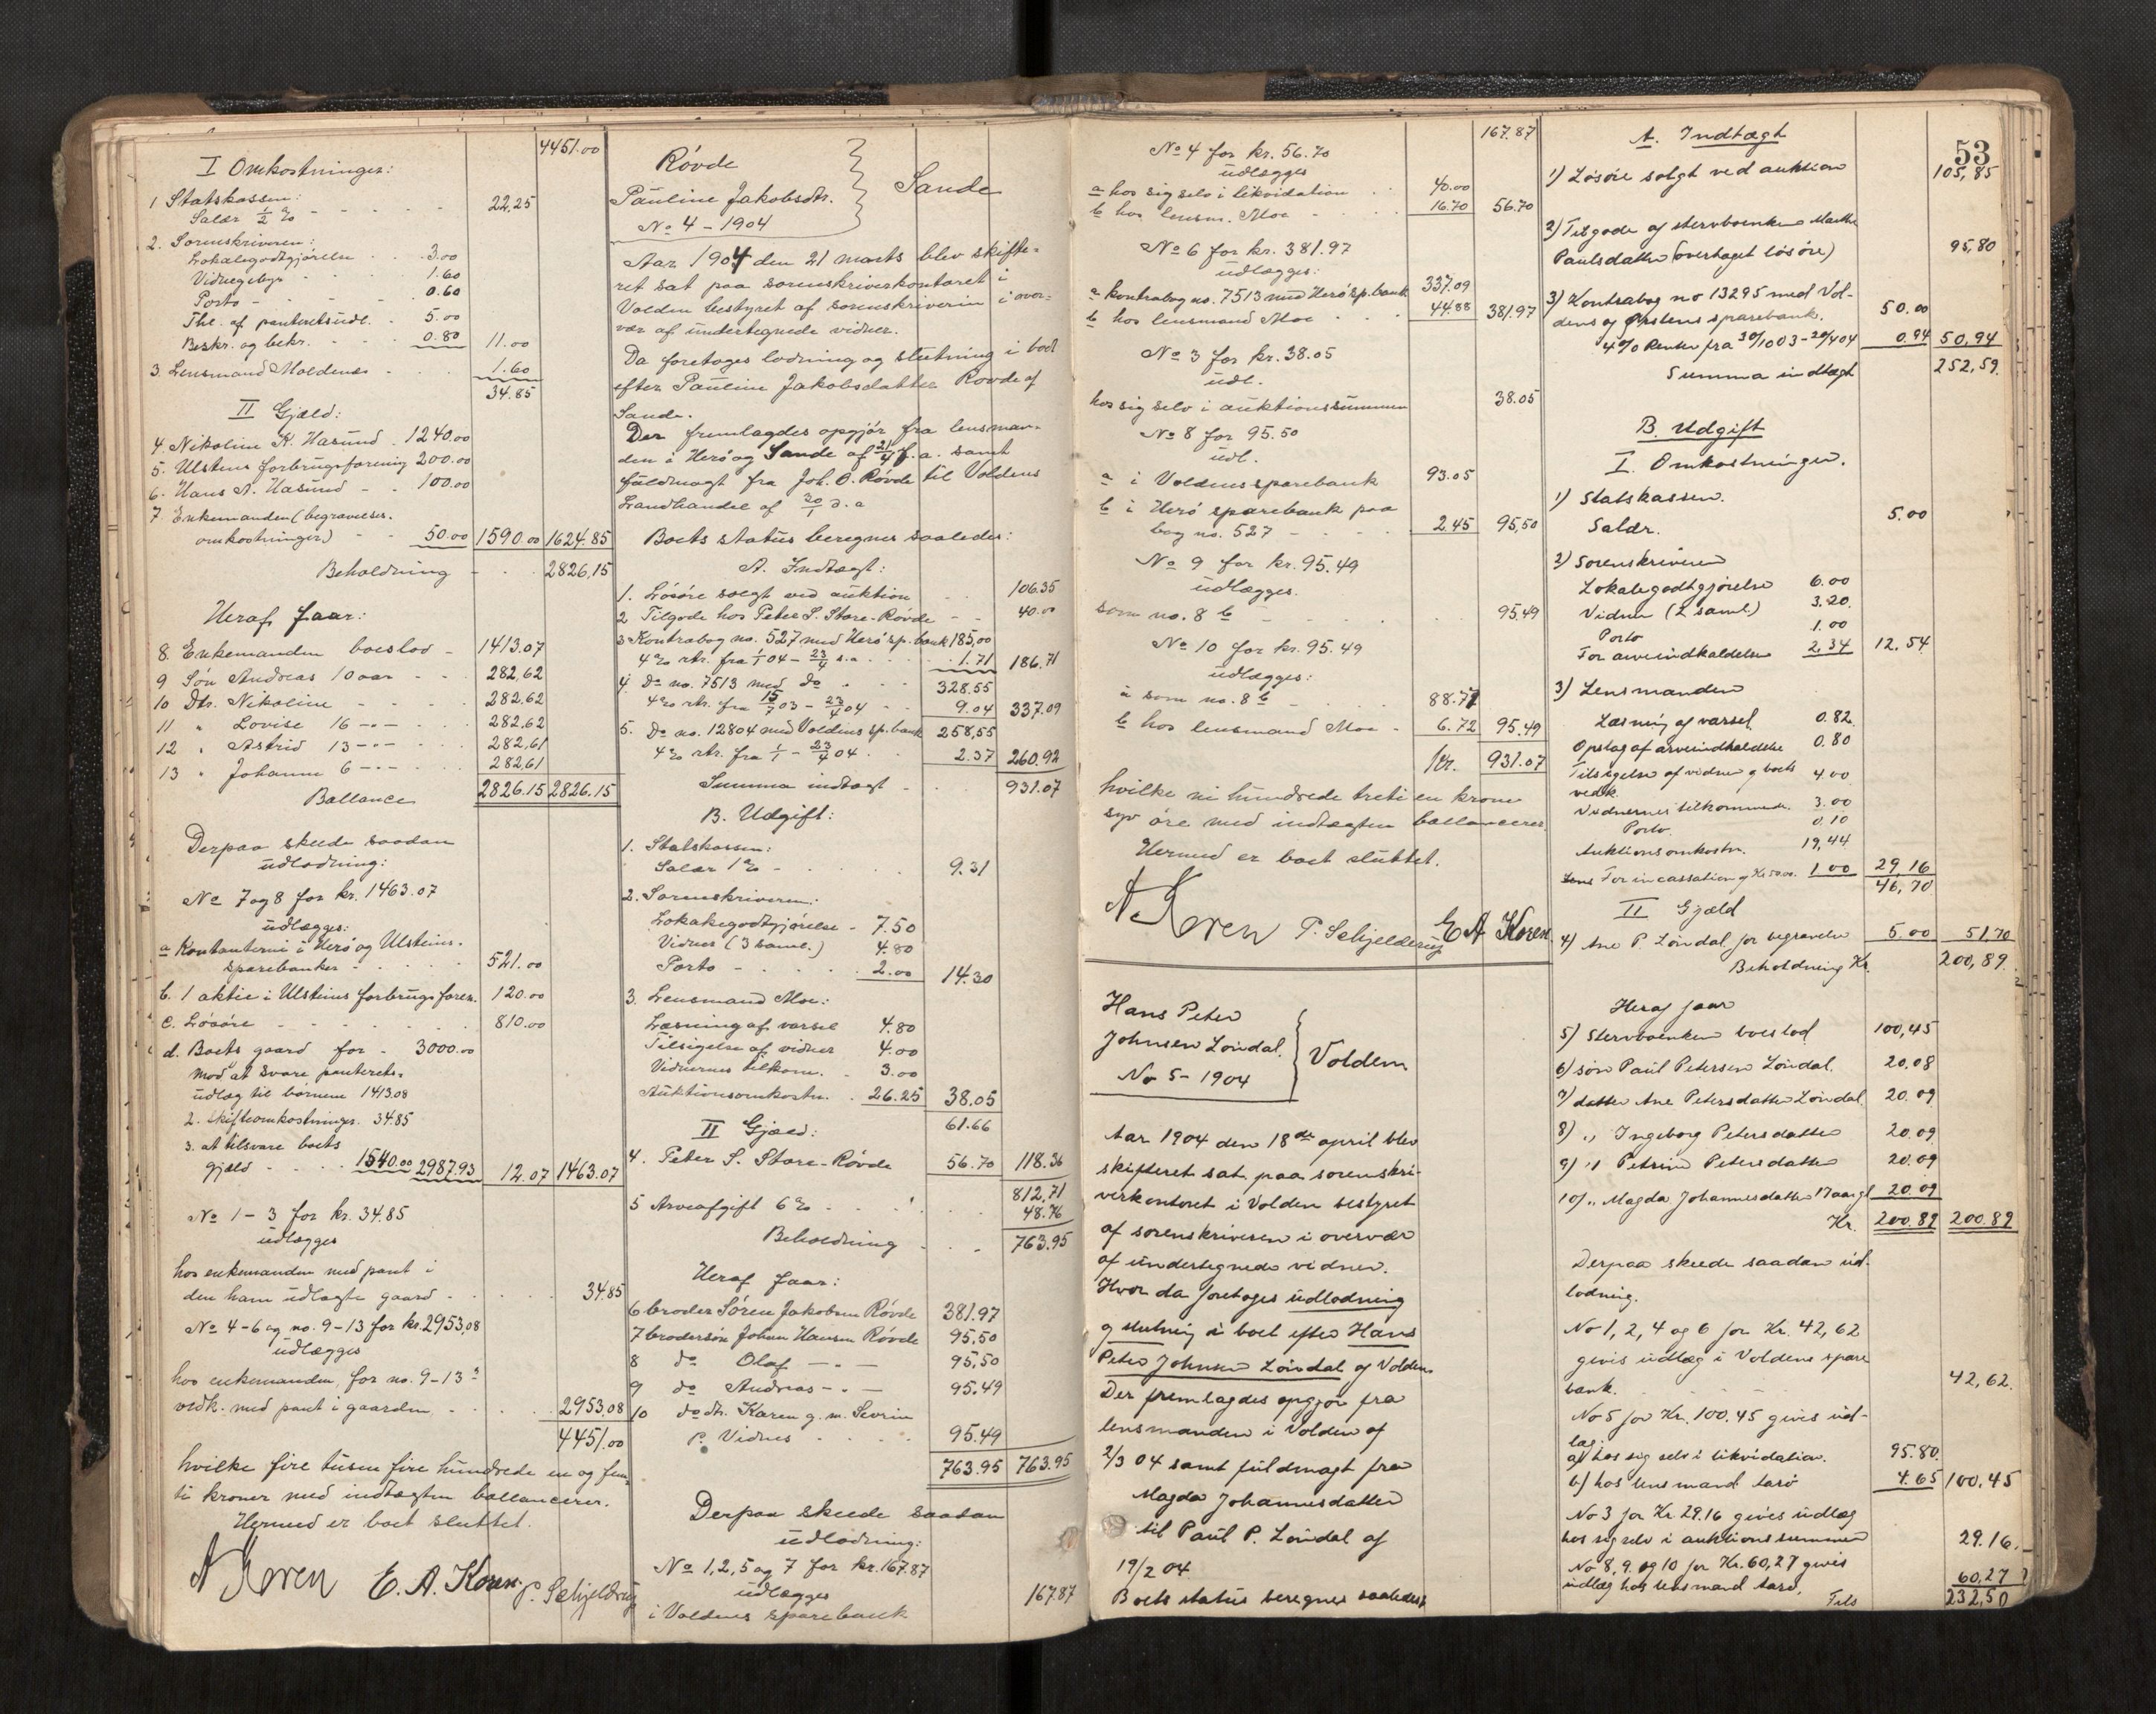 4451.00
I Omkostninger:
1 Statskassen:
Salær ½ % - - - - 22,25
2. Sorenskriveren:
Lokalegodtgjørelse . . 3.00
Vidnegebyr - 1.60
Porto - - - - 0.60
Thl. af panteretsudl. - 5.00
Beskr. og bekr. - - 0.80 11.00
3. Lensmand Moldenæs - - 1.60
34.85
II Gjæld:
4. Nikoline K. Hasund . 1240.00
5. Ulstens forbrugsforening 200.00
6. Hans A. Hasund - - 100.00
7. Enkemanden (begravelses-
omkostninger) - - 50.00 1590.00 1624.85
Beholdning - - 2826,15
Heraf faar:
8. Enkemanden boeslod - 1413.07
9 Søn Andreas 10 aar - - 282,62
10 Dtr. Nikoline - - - - 282,62
11 " Lovise 16 -"- - - 282,62
12 " Astrid 13 -"- - - 282,61
13 " Johanne 6 -"- - - 282,61
Ballance 2826.15 2826.15
Derpaa skede saadan
udlodning:
No 7 og 8 for kr. 1463.07
udlægges:
a Kontanterne i Herø og Ulsteins-
sparebanker - - - - 521.00
b. 1 aktie i Ulsteins forbrugsforen. 120.00
c. Løsøre - - - - - 810.00
d. Boets gaard for - 3000.00
mod at svare panterets-
udlæg til børnene 1413.08
2. Skifteomkostninger. 34.85
3. at tilsvare boets
gjæld - - - - 1540.00 2987.93 12.07 1463.07
No 1-3 for kr. 34.85
udlægges
hos enkemanden med pant i
den ham udlagte gaard - - - - 34.85
No 4-6 og no. 9-13 for kr. 2953,08
udlægges
hos enkemanden, for no. 9-13s
vedk. med pant i gaarden - - - 2953.08
4451.00
hvilke fire tusen fire hundrede en og fem-
ti kroner med indtægten ballancerer.
Hermed er boet sluttet.
A Koren E. A. Koren. P. Schjelderup
Røvde
Pauline Jakobsdtr.
No 4 - 1904
Sande
Aar 1904 den 21 marts blev skifte-
ret sat paa sorenskriverkontoret i
Volden bestyret af sorenskriveren i over-
vær af undertegnede vidner.
Da foretoges lodning og slutning i boet
efter Pauline Jakobsdatter Røvde af
Sande.
Der fremlagdes opgjør fra lensman-
den i Herø og Sande af 21/4 f. a. samt
fuldmagt fra Joh. O. Røvde til Voldens
Landhandel af 30/1 d. a
Boets status beregnes saaledes:
A. Indtægt:
1. Løsøre solgt ved auktion - - 106.35
2 Tilgode hos Peter S. Store-Røvde - - 40.00
3 Kontrabog no. 527 med Herø sp.bank 185,00
4 % rtr. fra 1/1 04 - 23/4 s.a. - - - 1.71 186.71
4. Do no. 7513 med do - - - 328.55
4 % rtr. fra 15/7 03 - 23/4 04 - - 9.04 337.09
5. Do no. 12804 med Voldens sp.bank 258,55
4 % rtr. fra 1/1 - 23/4 04 - - 2.37 260.92
Summa indtægt - - 931.07
B. Udgift:
1. Statskassen:
Salær 1 % - - - - - 9.31
2. Sorenskriveren:
Lokalegodtgjørelse - 7.50
Vidner (3 saml.) 4.80
Porto - - - - - 2.00 14.30
3. Lensmand Moe:
Læsning af varsel 4.80
Tilsigelse af vidner 4.00
Vidnernes tilkom. - 3.00
Auktionsomkostn. - 26.25 38,05
61.66
II Gjæld:
4. Peter S. Store-Røvde 56.70 118.36
812,71
5 Arveafgift 6 % - - - - - 48.76
Beholdning - - - 763.95
Heraf faar:
6 broder Søren Jakobsen Røvde 381.97
7 brodersøn Johan Hansen Røvde 95.50
8 do Olaf -"- 95,50
9 do Andreas -"- 95.49
10 do dtr. Karen g. m. Severin
P. Vidnes - - - - 95.49
763.95 763.95
Derpaa skede saadan
udlodning:
No 1, 2, 5 og 7 for kr. 167.87
udlægges
i Voldens sparebank 167.87
167.87
No 4 for kr. 56.70
udlægges
a hos sig selv i likvidation - - 40.00
b hos lensm. Moe - - - - 16.70 56.70
No 6 for kr. 381.97
udlægges:
a kontrabog no. 7513 med Herø sp.bank 337.09
b hos lensmand Moe - - - 44.88 381.97
No 3 for kr. 38.05
udl.
hos sig selv i auktionssummen 38.05
No 8 for 95.50
udl.
a i Voldens sparebank 93.05
b i Herø sparebank paa
bog no. 527 - - - - 2.45 95,50
No 9 for kr. 95.49
udlægges.
som no. 8 b - - - - - 95.49
No 10 for kr. 95.49
udlægges:
a som no. 8 b - - - - 88.77
b hos lensmand Moe - 6.72 95.49
Kr. 931.07
hvilke ni hundrede treti en krone
syv øre med indtægten ballancerer.
Hermed er boet sluttet.
A Koren P. Schjelderup E A Koren
Hans Peter
Johnsen Løndal.
No 5 - 1904
Volden
Aar 1904 den 18de april blev
skifteret sat paa sorenskri-
verkontoret i Volden bestyret
af sorenskriveren i overvær
af undertegnede vidner.
Hvor da foretoges udlodning
og slutning i boet efter Hans
Peter Johnsen Løndal af Volden.
Der fremlagdes opgjør fra
lensmanden i Volden af
2/3 04 samt fuldmagt fra
Magda Johannesdatter
til Paul P. Løndal af
19/2 04
Boets status beregnes saaledes:
53
A. Indtægt
1) Løsøre solgt ved auktion 105,85
2) Tilgode af stervboenken Marthe
Paulsdatter (overtaget løsøre) 95,80
3) Kontrabog no 13295 med Vol-
dens og Ørstens sparebank. 50.00
4 % Renter fra 30/10 03 - 20/4 04 0.94 50,94
Summa indtægt 252,59.
B. Udgift
I. Omkostninger.
1) Statskassen.
Salær. 5.00
2) Sorenskriveren
Lokalegodtgjørelse 6.00
Vidner (2 saml.) 3.20.
Porto 1.00
For arveindkaldelse 2,34 12,54
3) Lensmanden
Læsning af varsel. 0.82.
Opslag af arveindkaldelse 0.80
Tilsigelse af vidner og boets
vedk. 4.00
Vidnernes tilkommende. 3.00
Porto. 0,10
Auktionsomkostn. 19,44
For incassation af Kr 50.00. 1.00 29,16
46,70
II Gjæld
4) Ane P. Løndal for begravelse 5.00 51,70
Beholdning Kr. 200,89.
Heraf faar
5) Stervboenken boeslod 100,45
6) søn Paul Petersen Løndal. 20.08
7) datter Ane Petersdatter Løndal. 20.09
8) " Ingeborg Petersdatter 20.09
9) " Petrine Petersdatter 20.09
10) " Magda Johannesdatter 17 aar gl 20.09
Kr. 200.89 200.89
Derpaa skede saadan ud-
lodning.
No 1, 2, 4 og 6 for Kr. 42,62
gives udlæg i Voldens spare
bank. - - - - 42,62.
No 5 for Kr. 100.45 gives ud-
læg:
a) hos sig selv i likvidation. 95.80.
b) hos lensmand Aarø 4.65 100,45
No 3 for Kr. 29.16 gives udlæg
hos sig selv i auktionssummen 29.16.
No 8, 9 og 10 for Kr. 60,27 gives
udlæg hos lensmand Aarø. 60,27
Tils 232,50